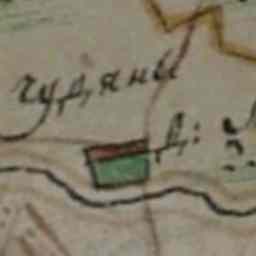 чудяны
Д: